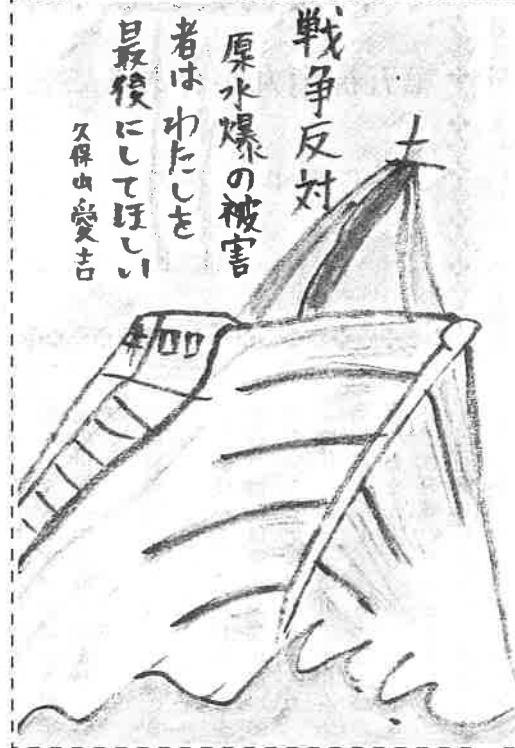 戦争反対
原水爆の被害
者はわたしを
最後にしてほしい
久保山愛吉